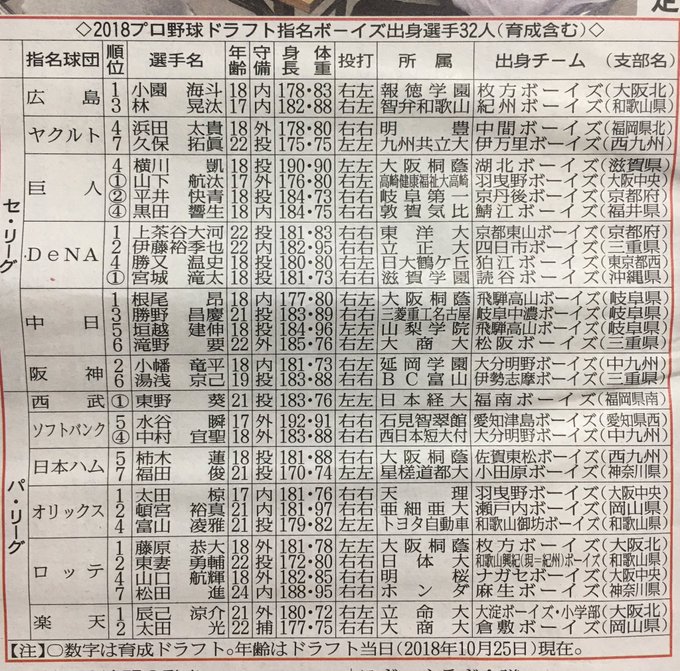 ◇2018プロ野球ドラフト指名ボーイズ出身選手32人(育成含む)◇
指名球団 順位 選手名 年齢 守備 身長・体重 投打 所属 出身チーム(支部名)
セ・リーグ
広島 1 小園海斗 18 内 178・83 右左 報徳学園 枚方ボーイズ(大阪北)
3 林晃汰 17 内 182・88 右左 智弁和歌山 紀州ボーイズ(和歌山県)
ヤクルト 4 浜田太貴 18 外 178・80 右右 明豊 中間ボーイズ(福岡県北)
7 久保拓眞 22 投 175・75 左左 九州共立大 伊万里ボーイズ(西九州)
巨人 4 横川凱 18 投 190・90 左左 大阪桐蔭 湖北ボーイズ(滋賀県)
① 山下航汰 17 外 176・80 右左 高崎健康福祉大高崎 羽曳野ボーイズ(大阪中央)
② 平井快青 18 投 184・73 右右 岐阜第一 京丹後ボーイズ(京都府)
④ 黒田響生 18 内 184・75 右右 敦賀気比 鯖江ボーイズ(福井県)
DeNA 1 上茶谷大河 22 投 181・83 右右 東洋大 京都東山ボーイズ(京都府)
2 伊藤裕季也 22 内 182・95 右右 立正大 四日市ボーイズ(三重県)
4 勝又温史 18 投 180・80 右左 日大鶴ケ丘 狛江ボーイズ(東京都西)
① 宮城滝太 18 投 181・73 右右 滋賀学園 読谷ボーイズ(沖縄県)
中日 1 根尾昂 18 内 177・80 右左 大阪桐蔭 飛騨高山ボーイズ(岐阜県)
3 勝野昌慶 21 投 183・89 右右 三菱重工名古屋 岐阜中濃ボーイズ(岐阜県)
5 垣越建伸 18 投 184・96 左左 山梨学院 飛騨高山ボーイズ(岐阜県)
6 滝野要 22 外 185・76 左左 大商大 松阪ボーイズ(三重県)
阪神 2 小幡竜平 18 内 181・73 右左 延岡学園 大分明野ボーイズ(中九州)
6 湯浅京己 19 投 183・88 右右 BC富山 伊勢志摩ボーイズ(三重県)
パ・リーグ
西武 ① 東野葵 21 投 183・76 左左 日本経大 福南ボーイズ(福岡県南)
ソフトバンク 5 水谷瞬 17 外 192・91 右右 石見智翠館 愛知津島ボーイズ(愛知県西)
④ 中村宜聖 18 外 183・88 右右 西日本短大付 大分明野ボーイズ(中九州)
日本ハム 5 柿木蓮 18 投 181・88 右右 大阪桐蔭 佐賀東松ボーイズ(西九州)
7 福田俊 21 投 170・74 左左 星槎道都大 小田原ボーイズ(神奈川県)
オリックス 1 太田椋 17 内 181・76 右右 天理 羽曳野ボーイズ(大阪中央)
2 頓宮裕真 21 内 181・97 右右 亜細亜大 瀬戸内ボーイズ(岡山県)
4 富山凌雅 21 投 179・82 左左 トヨタ自動車 和歌山御坊ボーイズ(和歌山県)
ロッテ 1 藤原恭大 18 外 181・78 左左 大阪桐蔭 枚方ボーイズ(大阪北)
2 東妻勇輔 22 投 172・80 右右 日体大 和歌山興紀(現=紀州)ボーイズ(和歌山県)
4 山口航輝 18 外 182・85 右右 明桜 ナガセボーイズ(大阪中央)
7 松田進 24 内 188・95 右右 ホンダ 麻生ボーイズ(神奈川県)
楽天 1 辰己涼介 21 外 180・72 右左 立命大 大淀ボーイズ・小学部(大阪北)
2 太田光 22 捕 177・75 右右 大商大 倉敷ボーイズ(岡山県)
【注】○数字は育成ドラフト。年齢はドラフト当日(2018年10月25日)現在。